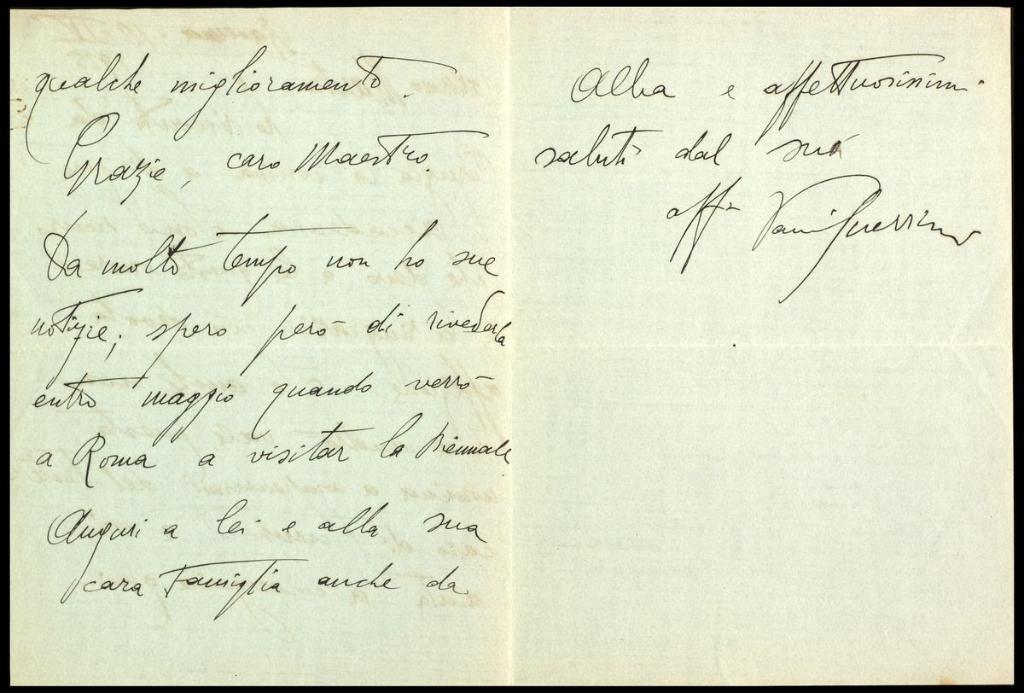 qualche miglioramento.
Grazie, caro Maestro.
Da molto tempo non ho sue
notizie; spero però di rivederla
entro maggio quando verrò
a Roma a visitar la Biennale.
Auguri a lei e alla sua
cara famiglia anche da
Alba e affettuosissimi
saluti dal suo
aff